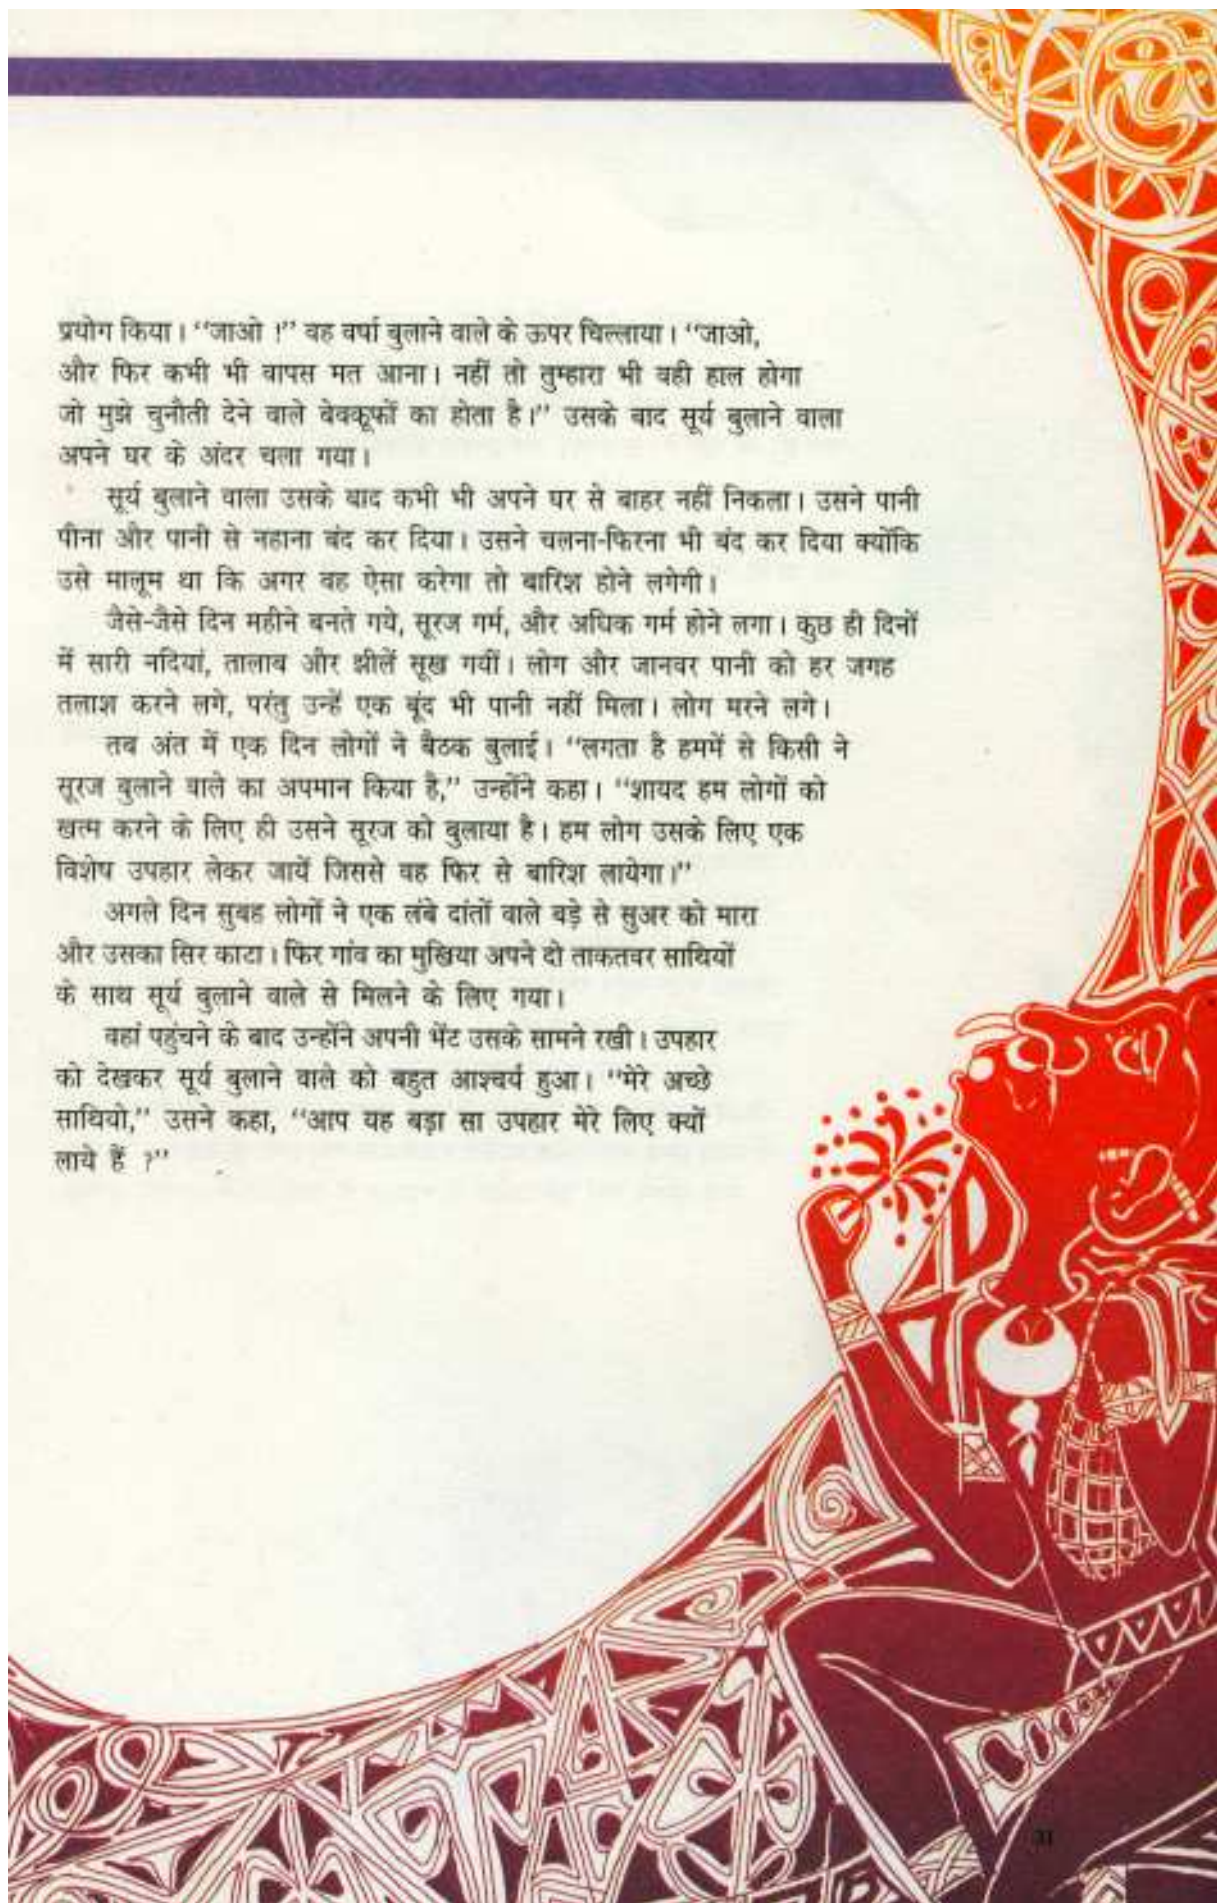 प्रयोग किया। ‘‘जाओ !’’ वह वर्षा बुलाने वाले के ऊपर चिल्लाया। ‘‘जाओ,
और फिर कभी भी वापस मत आना। नहीं तो तुम्हारा भी वही हाल होगा
जो मुझे चुनौती देने वाले बेवकूफों का होता है।’’ उसके बाद सूर्य बुलाने वाला
अपने घर के अंदर चला गया।
सूर्य बुलाने वाला उसके बाद कभी भी अपने घर से बाहर नहीं निकला। उसने पानी
पीना और पानी से नहाना बंद कर दिया। उसने चलना-फिरना भी बंद कर दिया क्योंकि
उसे मालूम था कि अगर वह ऐसा करेगा तो बारिश होने लगेगी।
जैसे-जैसे दिन महीने बनते गये, सूरज गर्म, और अधिक गर्म होने लगा। कुछ ही दिनों
में सारी नदियां, तालाब और झीलें सूख गयीं। लोग और जानवर पानी को हर जगह
तलाश करने लगे, परंतु उन्हें एक बूंद भी पानी नहीं मिला। लोग मरने लगे।
तब अंत में एक दिन लोगों ने बैठक बुलाई। ‘‘लगता है हममें से किसी ने
सूरज बुलाने वाले का अपमान किया है,’’ उन्होंने कहा। ‘‘शायद हम लोगों को
खत्म करने के लिए ही उसने सूरज को बुलाया है। हम लोग उसके लिए एक
विशेष उपहार लेकर जायें जिससे वह फिर से बारिश लायेगा।’’
अगले दिन सुबह लोगों ने एक लंबे दांतों वाले बड़े से सुअर को मारा
और उसका सिर काटा। फिर गांव का मुखिया अपने दो ताकतवर साथियों
के साथ सूर्य बुलाने वाले से मिलने के लिए गया।
वहां पहुंचने के बाद उन्होंने अपनी भेंट उसके सामने रखी। उपहार
को देखकर सूर्य बुलाने वाले को बहुत आश्चर्य हुआ। ‘‘मेरे अच्छे
साथियो,’’ उसने कहा, ‘‘आप यह बड़ा सा उपहार मेरे लिए क्यों
लाये हैं ?’’
31